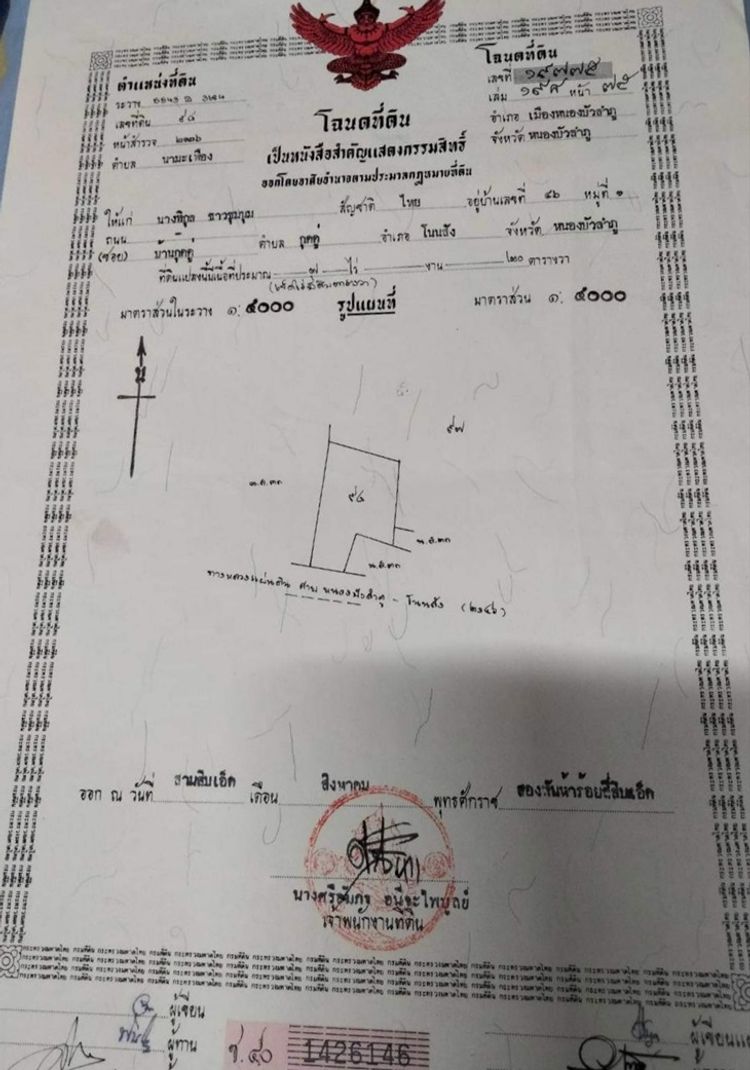 โฉนดที่ดิน
ตำแหน่งที่ดิน
เลขที่ ๑๙๗๗๕
ระวาง
เล่ม ๑๙๘ หน้า ๗๕
เลขที่ดิน ๙๘
อำเภอ เมืองหนองบัวลำภู
หน้าสำรวจ
จังหวัด หนองบัวลำภู
ตำบล นามะเฟือง
โฉนดที่ดิน
เป็นหนังสือสำคัญแสดงกรรมสิทธิ์
ออกโดยอาศัยอำนาจตามประมวลกฎหมายที่ดิน
ให้แก่ นางพิกุล สัญชาติ ไทย อยู่บ้านเลขที่ ๔๖ หมู่ที่ ๑
ถนน (ซอย) บ้านกุดคู่ ตำบล กุดดู่ อำเภอ โนนสัง จังหวัด หนองบัวลำภู
ที่ดินแปลงนี้มีเนื้อที่ประมาณ ๗ ไร่ งาน ๒๐ ตารางวา
มาตราส่วนในระวาง ๑: ๔๐๐๐ รูปแผนที่ มาตราส่วน ๑: ๔๐๐๐
น
๙๗
๙๘
น.ส.๓ก
น.ส.๓ก
น.ส.๓ก
ทางหลวงแผ่นดิน สาย หนองบัวลำภู - โนนสัง (๒๑๔๖)
ออก ณ วันที่ สามสิบเอ็ด เดือน สิงหาคม พุทธศักราช สองพันห้าร้อยสี่สิบเอ็ด
เจ้าพนักงานที่ดิน
ผู้เขียน
ผู้ทาน
1426146
ผู้เขียนแ